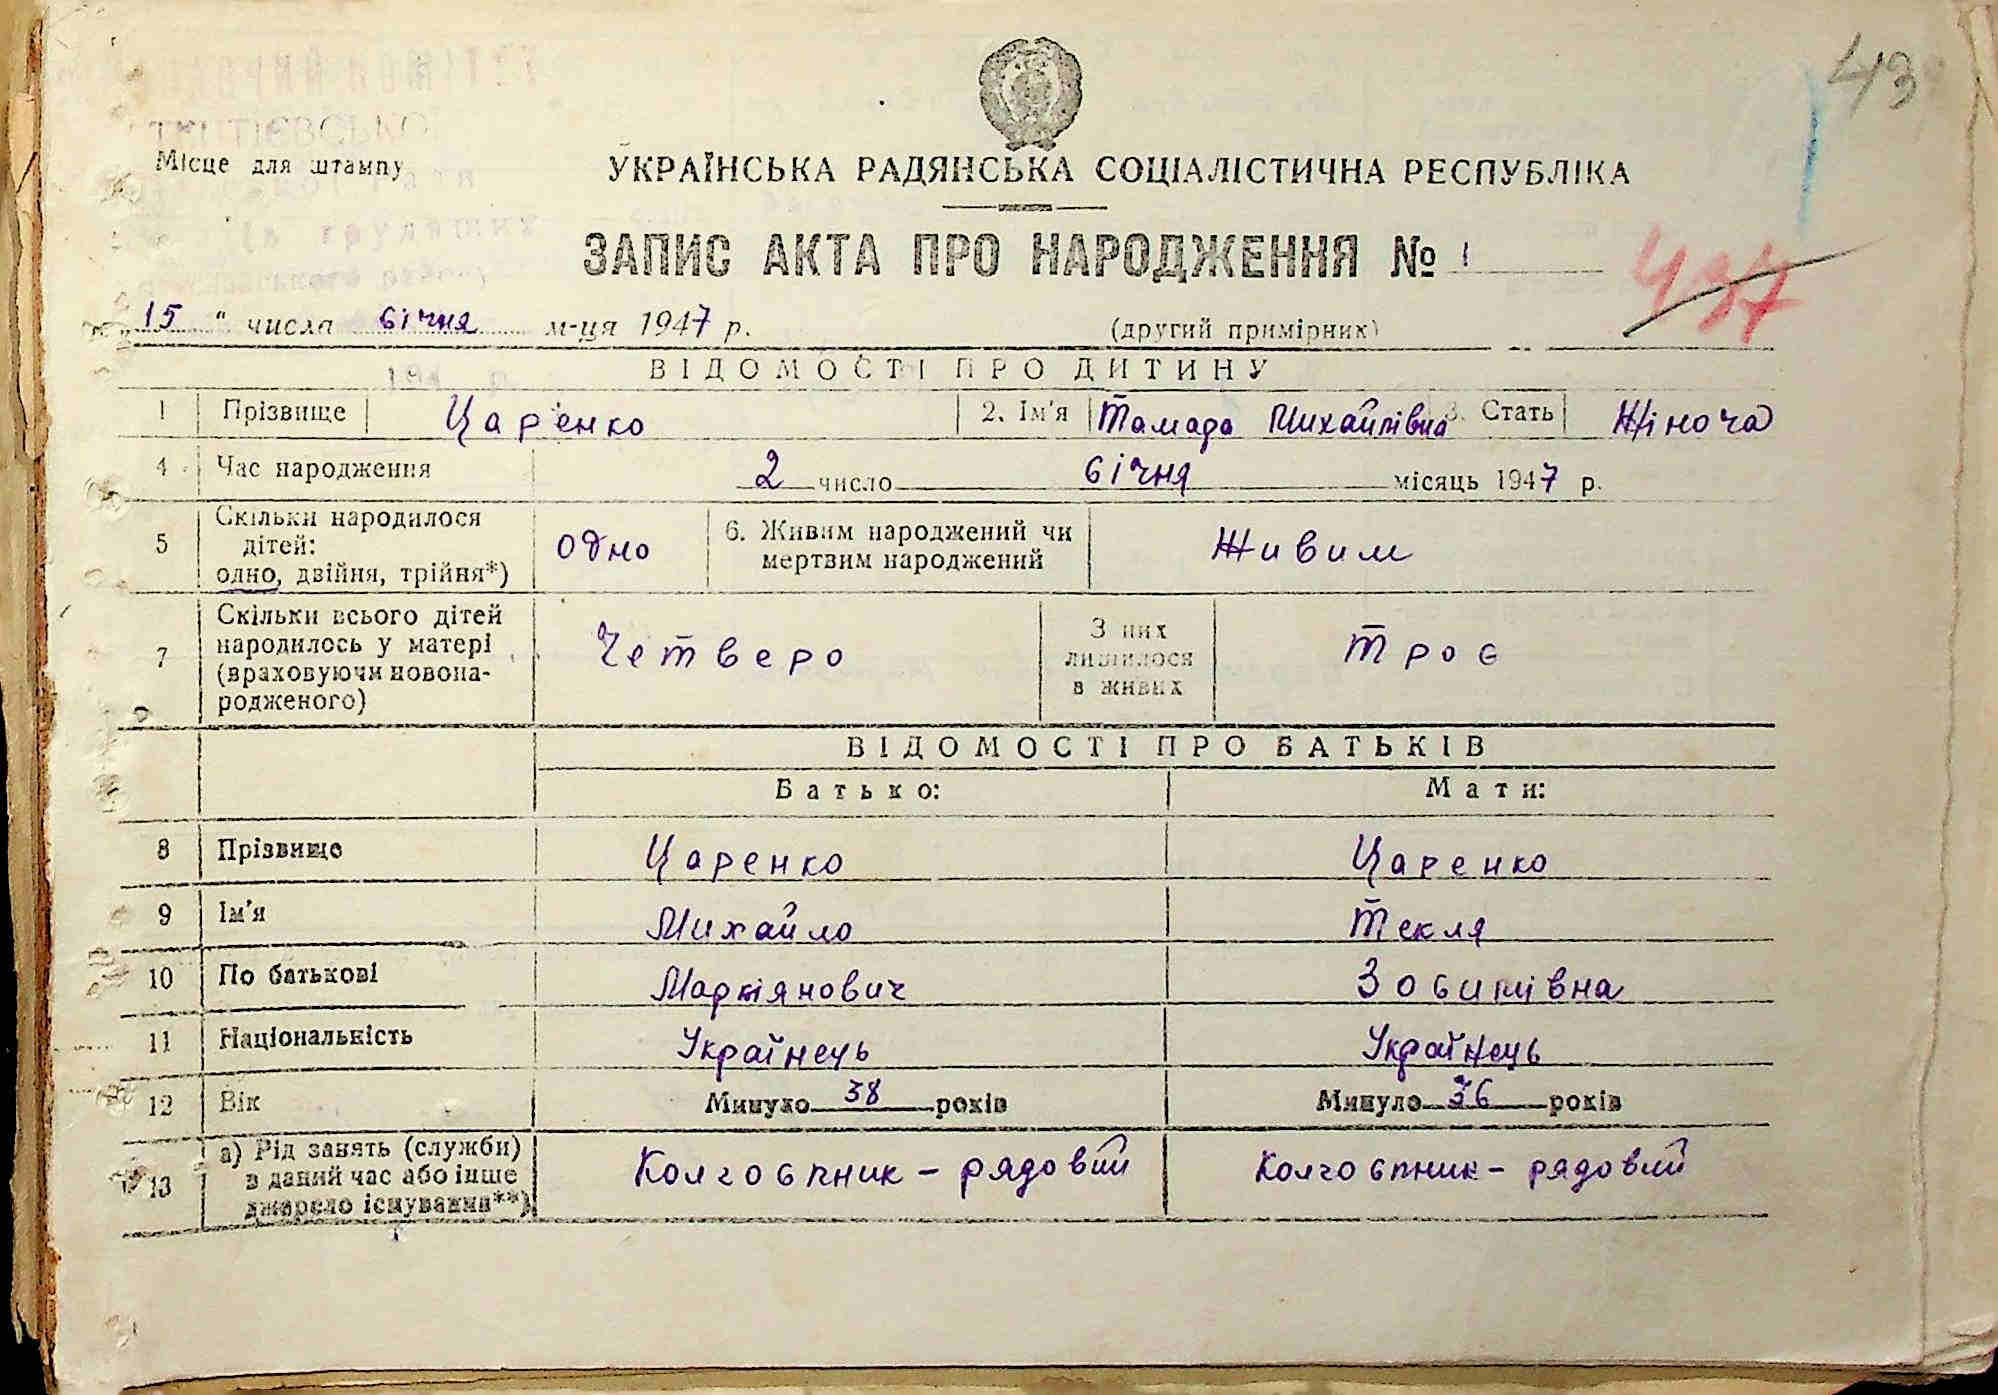 43
Місце для штампу
УКРАЇНСЬКА РАДЯНСЬКА СОЦІАЛІСТИЧНА РЕСПУБЛІКА
ЗАПИС АКТА ПРО НАРОДЖЕННЯ № 1
437
„15" числа січня м-ця 1947 р.
(другий примірник)
ВІДОМОСТІ ПРО ДИТИНУ
1 Прізвище Царенко 2. Ім'я Тамара Михайлівна 3. Стать Жіноча
4 Час народження 2 число січня місяць 1947 р.
5 Скільки народилося дітей: одно, двійня, трійня*) одно 6. Живим народжений чи мертвим народжений Живим
7 Скільки всього дітей народилось у матері (враховуючи новонародженого) Четверо З них лишилося в живих Троє
ВІДОМОСТІ ПРО БАТЬКІВ
Батько: Мати:
8 Прізвище Царенко Царенко
9 Ім'я Михайло Текля
10 По батькові Мартянович Зосимівна
11 Національність Українець Українець
12 Вік Минуло 38 років Минуло 36 років
13 а) Рід занять (служби) в даний час або інше джерело існування**) Колгоспник – рядовий Колгоспник – рядовий